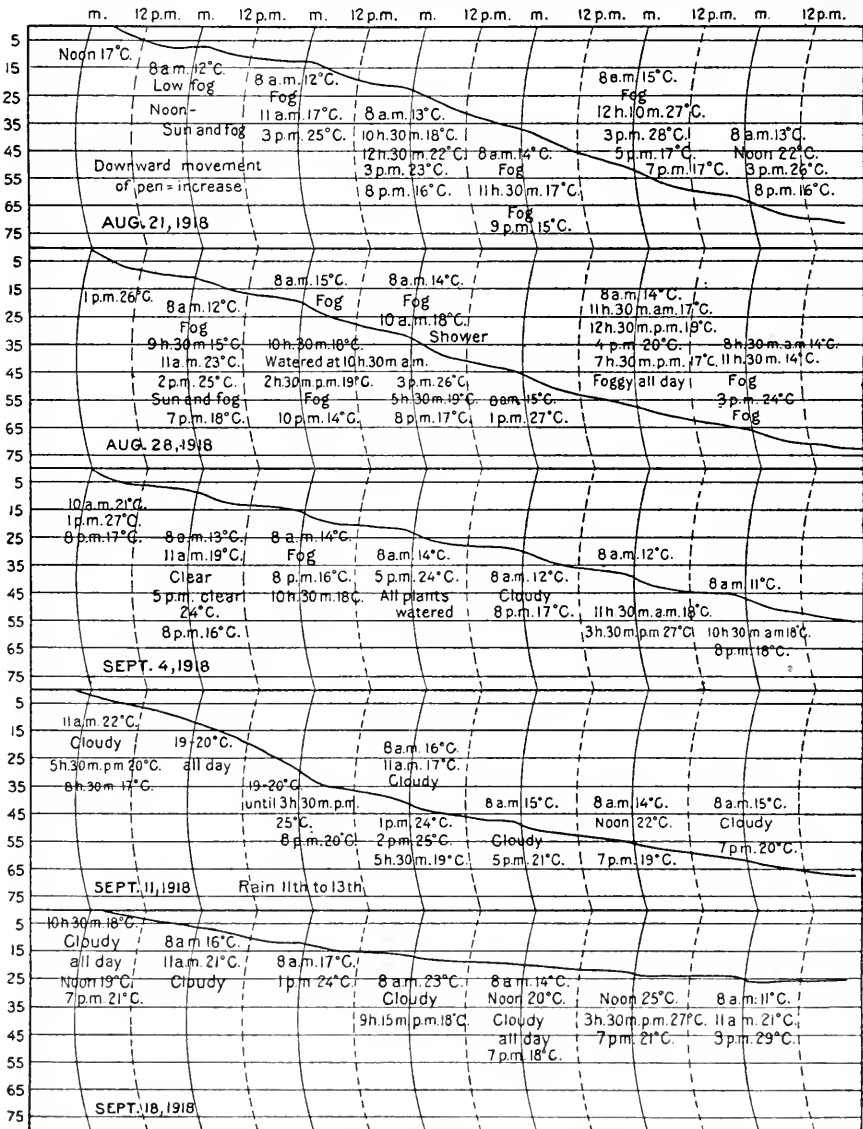 m. 12p.m. m. 12p.m. m. 12p.m. m. 12p.m. m. 12p.m. m. 12p.m. m. 12p.m.
5
15
25
35
45
55
65
75
Noon 17°C.
8 a.m. 12°C.
Low fog
Noon-
Sun and fog
Downward movement
of pen = increase
8 a.m. 12°C.
Fog
11 a.m. 17°C.
3 p.m. 25°C.
8 a.m. 13°C.
10 h.30 m. 18°C.
12 h.30 m. 22°C.
3 p.m. 23°C.
8 p.m. 16°C.
8 a.m. 14°C.
Fog
11 h.30 m. 17°C.
Fog
9 p.m. 15°C.
8 a.m. 15°C.
Fog
12 h.10 m. 27°C.
3 p.m. 28°C.
5 p.m. 17°C.
7 p.m. 17°C.
8 a.m. 13°C.
Noon 22°C.
3 p.m. 26°C.
8 p.m. 16°C.
AUG. 21, 1918
5
15
25
35
45
55
65
75
1 p.m. 26°C.
8 a.m. 12°C.
Fog
9 h.30 m 15°C.
11 a.m. 23°C.
2 p.m. 25°C.
Sun and fog
7 p.m. 18°C.
8 a.m. 15°C.
Fog
10 h.30 m. 18°C.
Watered at 10 h.30 m a.m.
2 h.30 m. p.m. 19°C.
Fog
10 p.m. 14°C.
8 a.m. 14°C.
Fog
10 a.m. 18°C.
Shower
3 p.m. 26°C.
5 h.30 m. 19°C.
8 p.m. 17°C.
8 a.m. 15°C.
1 p.m. 27°C.
8 a.m. 14°C.
11 h.30 m. a.m. 17°C.
12 h.30 m. p.m. 19°C.
4 p.m. 20°C.
7 h.30 m. p.m. 17°C.
Foggy all day
8 h.30 m. a.m 14°C.
11 h.30 m. 14°C.
Fog
3 p.m. 24°C
Fog
AUG. 28, 1918
5
15
25
35
45
55
65
75
10 a.m. 21°C.
1 p.m. 27°C.
8 p.m. 17°C.
8 a.m. 13°C.
11 a.m. 19°C.
Clear
5 p.m. clear
24°C.
8 p.m. 16°C.
8 a.m. 14°C.
Fog
8 p.m. 16°C.
10 h.30 m. 18°C.
8 a.m. 14°C.
5 p.m. 24°C.
All plants
watered
8 a.m. 12°C.
Cloudy
8 p.m. 17°C.
8 a.m. 12°C.
11 h 30 m. a.m. 18°C.
3 h.30 m. p.m 27°C.
8 a.m. 11°C.
10 h 30 m a m 18°C.
8 p.m. 18°C.
SEPT. 4, 1918
5
15
25
35
45
55
65
75
11 a.m. 22°C.
Cloudy
5 h.30 m. p.m 20°C.
8 h.30 m 17°C.
19-20°C.
all day
19-20°C.
until 3 h.30 m. p.m.
25°C.
8 p.m. 20°C.
8 a.m. 16°C.
11 a.m. 17°C.
Cloudy
1 p.m. 24°C.
2 p.m. 25°C.
5 h.30 m. 19°C.
8 a.m. 15°C.
Cloudy
5 p.m. 21°C.
8 a.m. 14°C.
Noon 22°C.
7 p.m. 19°C.
8 a.m. 15°C.
Cloudy
7 p.m. 20°C.
SEPT. 11, 1918 Rain 11th to 13th
5
15
25
35
45
55
65
75
10 h 30 m. 18°C.
Cloudy
all day
Noon 19°C.
7 p.m. 21°C.
8 a m 16°C.
11 a.m. 21°C.
Cloudy
8 a.m. 17°C.
1 p.m 24°C.
8 a.m. 23°C.
Cloudy
9 h.15 m. p.m. 18°C.
8 a.m. 14°C.
Noon 20°C.
Cloudy
all day
7 p.m. 18°C.
Noon 25°C.
3 h.30 m. p.m. 27°C.
7 p.m. 21°C.
8 a.m. 11°C.
11 a m. 21°C.
3 p.m. 29°C.
SEPT. 18, 1918